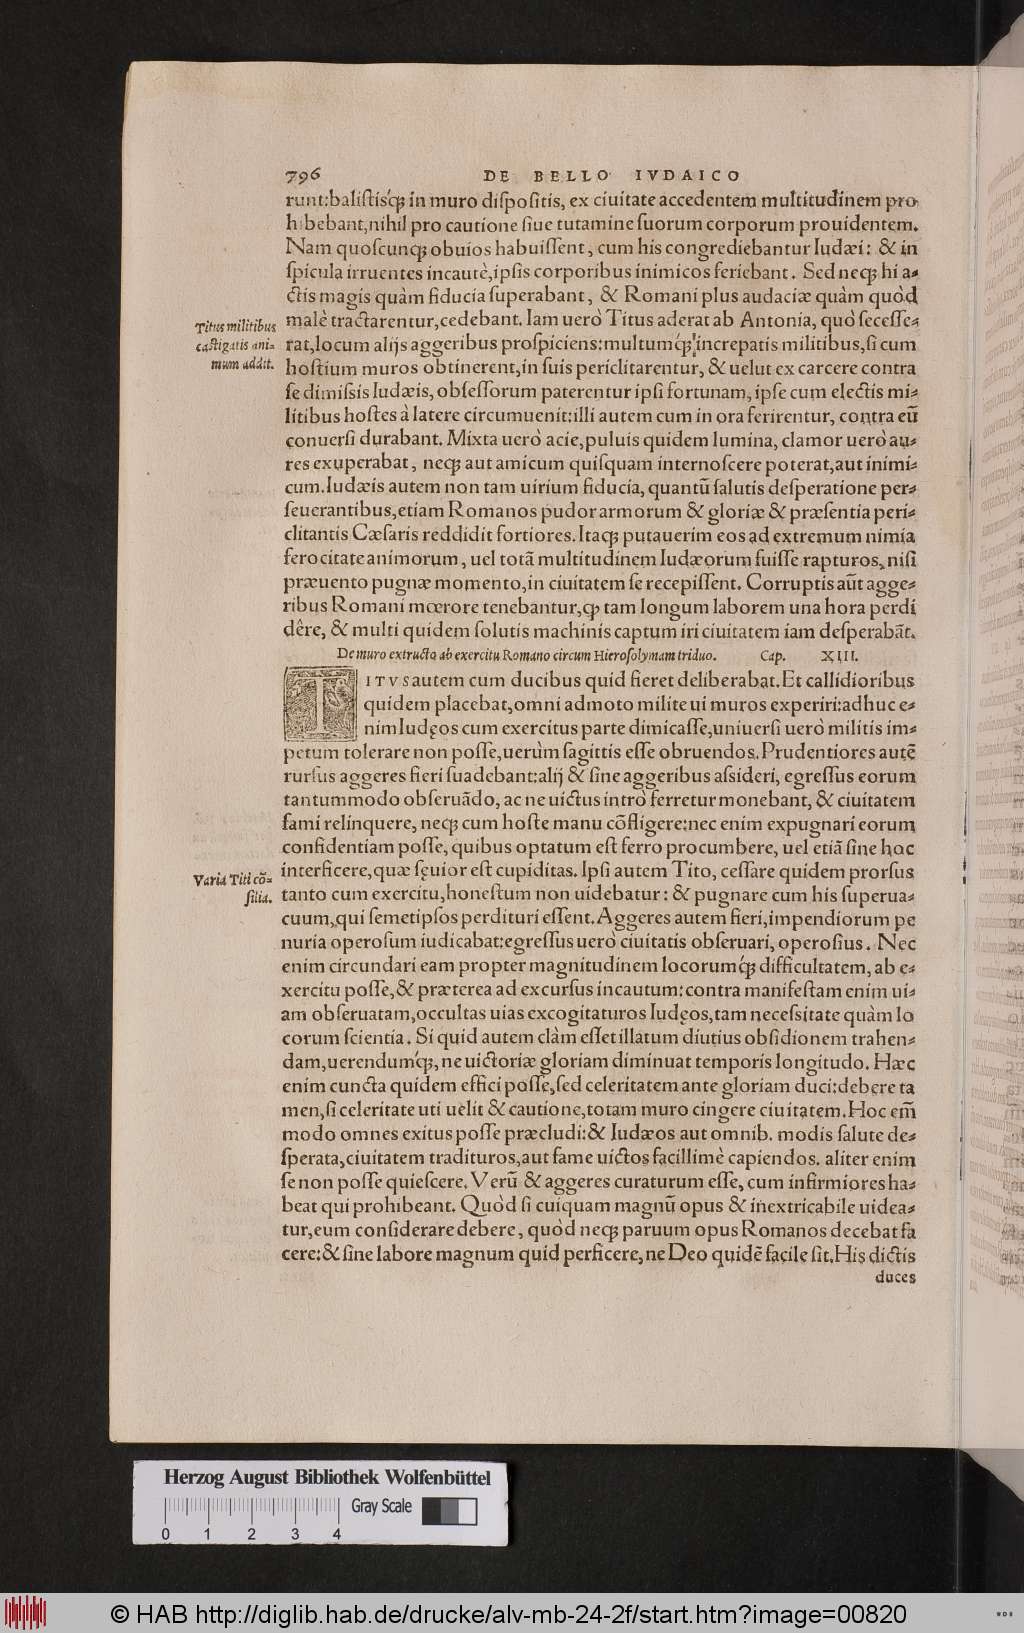 796 DE BELLO IVDAICO
runt:balistisq́ꝫ in muro dispositis, ex ciuitate accedentem multitudinem pro
hibebant,nihil pro cautione siue tutamine suorum corporum prouidentem.
Nam quoscunqꝫ obuios habuissent, cum his congrediebantur Iudæi: & in
spicula irruentes incautè,ipsis corporibus inimicos feriebant. Sed neqꝫ hi a⸗
ctis magis quàm fiducia superabant, & Romani plus audaciæ quàm quòd
malè tractarentur,cedebant. Iam uerò Titus aderat ab Antonia, quò secesse⸗
Titus militibus
castigatis ani⸗
mum addit.
rat,locum alijs aggeribus prospiciens:multumq́ꝫ increpatis militibus,si cum
hostium muros obtinerent,in suis periclitarentur, & uelut ex carcere contra
se dimissis Iudæis, obsessorum paterentur ipsi fortunam, ipse cum electis mi⸗
litibus hostes à latere circumuenit:illi autem cum in ora ferirentur, contra eũ
conuersi durabant. Mixta uerò acie,puluis quidem lumina, clamor uerò au⸗
res exuperabat, neqꝫ aut amicum quisquam internoscere poterat,aut inimi⸗
cum.Iudæis autem non tam uirium fiducia, quantũ salutis desperatione per⸗
seuerantibus,etiam Romanos pudor armorum & gloriæ & præsentia peri⸗
clitantis Cæsaris reddidit fortiores. Itaqꝫ putauerim eos ad extremum nimia
ferocitate animorum, uel totã multitudinem Iudæorum fuisse rapturos, nisi
præuento pugnæ momento,in ciuitatem se recepissent. Corruptis aũt agge⸗
ribus Romani mœrore tenebantur,qꝫ tam longum laborem una hora perdi
dêre, & multi quidem solutis machinis captum iri ciuitatem iam desperabãt.
De muro extructo ab exercitu Romano circum Hierosolymam triduo. Cap. XIII.
TITVS autem cum ducibus quid fieret deliberabat.Et callidioribus
quidem placebat,omni admoto milite ui muros experiri:adhuc e⸗
nim Iudęos cum exercitus parte dimicasse,uniuersi uerò militis im⸗
petum tolerare non posse,uerùm sagittis esse obruendos. Prudentiores autẽ
rursus aggeres fieri suadebant:alij & sine aggeribus assideri, egressus eorum
tantummodo obseruãdo, ac ne uictus intrò ferretur monebant, & ciuitatem
fami relinquere, neqꝫ cum hoste manu cõfligere:nec enim expugnari eorum
confidentiam posse, quibus optatum est ferro procumbere, uel etiã sine hoc
Varia Titi cõ⸗
silia.
interficere,quæ sęuior est cupiditas. Ipsi autem Tito, cessare quidem prorsus
tanto cum exercitu,honestum non uidebatur: & pugnare cum his superua⸗
cuum,qui semetipsos perdituri essent. Aggeres autem fieri,impendiorum pe
nuria operosum iudicabat:egressus uerò ciuitatis obseruari, operosius. Nec
enim circundari eam propter magnitudinem locorumq́ꝫ difficultatem, ab e⸗
xercitu posse,& præterea ad excursus incautum:contra manifestam enim ui⸗
am obseruatam,occultas uias excogitaturos Iudęos,tam necessitate quàm lo
corum scientia. Si quid autem clàm esset illatum diutius obsidionem trahen⸗
dam,uerendumq́ꝫ, ne uictoriæ gloriam diminuat temporis longitudo. Hæc
enim cuncta quidem effici posse,sed celeritatem ante gloriam duci:debere ta
men,si celeritate uti uelit & cautione,totam muro cingere ciuitatem.Hoc em̃
modo omnes exitus posse præcludi:& Iudæos aut omnib. modis salute de⸗
sperata,ciuitatem tradituros,aut fame uictos facillimè capiendos. aliter enim
se non posse quiescere. Verũ & aggeres curaturum esse, cum infirmiores ha⸗
beat qui prohibeant. Quòd si cuiquam magnũ opus & inextricabile uidea⸗
tur,eum considerare debere, quòd neqꝫ paruum opus Romanos decebat fa
cere:& sine labore magnum quid perficere,ne Deo quidẽ facile sit.His dictis
duces
Herzog August Bibliothek Wolfenbüttel
Gray Scale
0 1 2 3 4
© HAB http://diglib.hab.de/drucke/alv-mb-24-2f/start.htm?image=00820